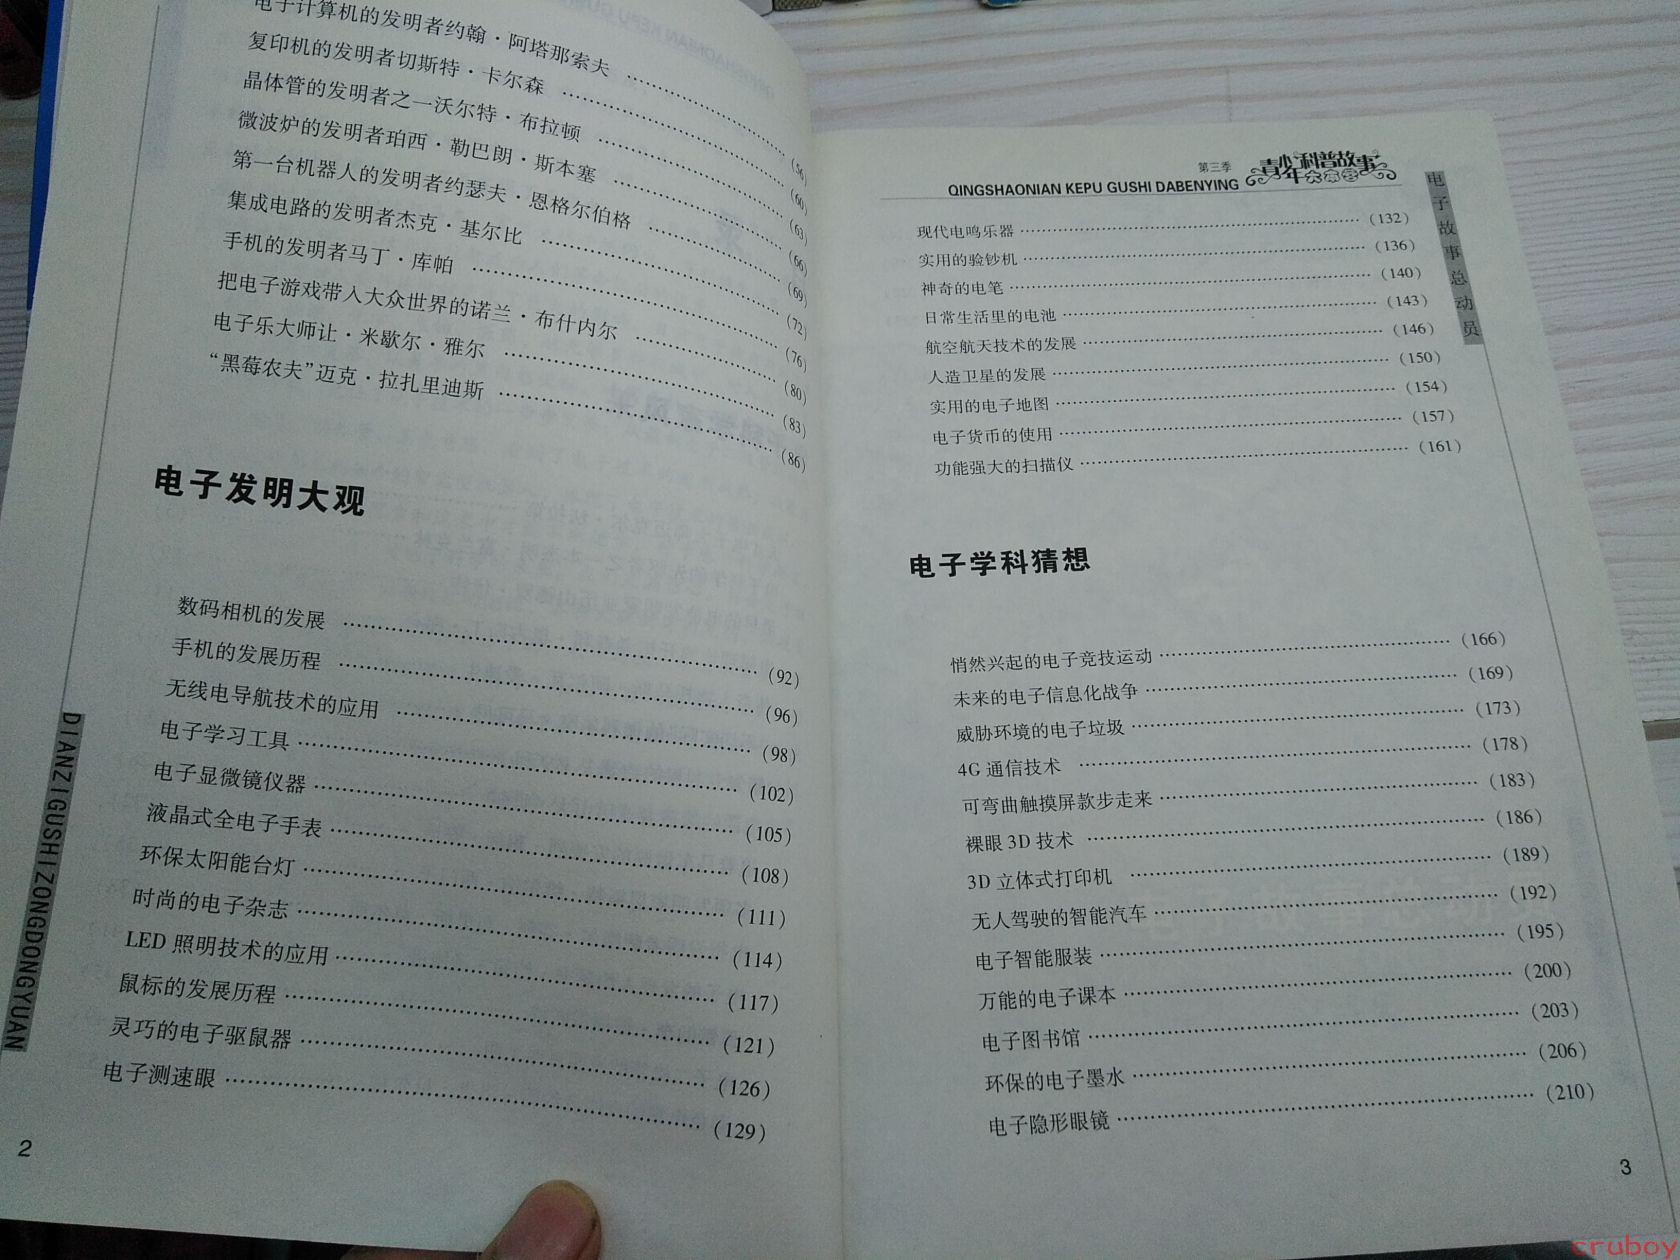 电子计算机的发明者约翰·阿塔那索夫 ……………… (56)
复印机的发明者切斯特·卡尔森 ……………… (60)
晶体管的发明者之一沃尔特·布拉顿 ……………… (63)
微波炉的发明者珀西·勒巴朗·斯本塞 ……………… (66)
第一台机器人的发明者约瑟夫·恩格尔伯格 ……………… (69)
集成电路的发明者杰克·基尔比 ……………… (72)
手机的发明者马丁·库帕 ……………… (76)
把电子游戏带入大众世界的诺兰·布什内尔 ……………… (80)
电子乐大师让·米歇尔·雅尔 ……………… (83)
“黑莓农夫”迈克·拉扎里迪斯 ……………… (86)
电子发明大观
数码相机的发展 ……………… (92)
手机的发展历程 ……………… (96)
无线电导航技术的应用 ……………… (98)
电子学习工具 ……………… (102)
电子显微镜仪器 ……………… (105)
液晶式全电子手表 ……………… (108)
环保太阳能台灯 ……………… (111)
时尚的电子杂志 ……………… (114)
LED 照明技术的应用 ……………… (117)
鼠标的发展历程 ……………… (121)
灵巧的电子驱鼠器 ……………… (126)
电子测速眼 ……………… (129)
DIANZIGUSHIZONGDONGYUAN
2
第三季
QINGSHAONIAN KEPU GUSHI DABENYING
青少年科普故事大本营
电子故事总动员
现代电鸣乐器 ……………… (132)
实用的验钞机 ……………… (136)
神奇的电笔 ……………… (140)
日常生活里的电池 ……………… (143)
航空航天技术的发展 ……………… (146)
人造卫星的发展 ……………… (150)
实用的电子地图 ……………… (154)
电子货币的使用 ……………… (157)
功能强大的扫描仪 ……………… (161)
电子学科猜想
悄然兴起的电子竞技运动 ……………… (166)
未来的电子信息化战争 ……………… (169)
威胁环境的电子垃圾 ……………… (173)
4G 通信技术 ……………… (178)
可弯曲触摸屏款步走来 ……………… (183)
裸眼 3D 技术 ……………… (186)
3D 立体式打印机 ……………… (189)
无人驾驶的智能汽车 ……………… (192)
电子智能服装 ……………… (195)
万能的电子课本 ……………… (200)
电子图书馆 ……………… (203)
环保的电子墨水 ……………… (206)
电子隐形眼镜 ……………… (210)
3
cruboy